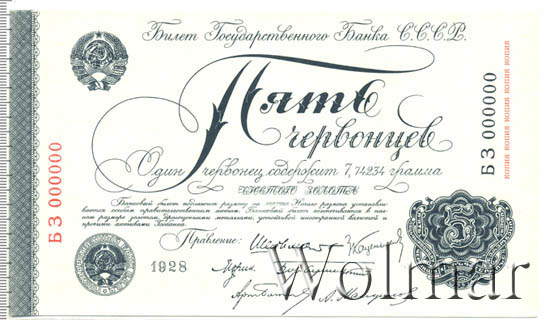 Билет Государственного Банка С.С.С.Р.
Пять
червонцев
Один червонец содержит 7,74234 грамма
чистого золота
Банковый билет подлежит размену на золото. Начало размена устанавли-
вается особым правительственным актом. Банковый билет обеспечивается в пол-
ном размере золотом, драгоценными металлами, устойчивой иностранной валютой и
прочими активами Госбанка.
Правление:
1928
5
БЗ 000000
БЗ 000000
КОПИЯ КОПИЯ КОПИЯ КОПИЯ
Wolmar